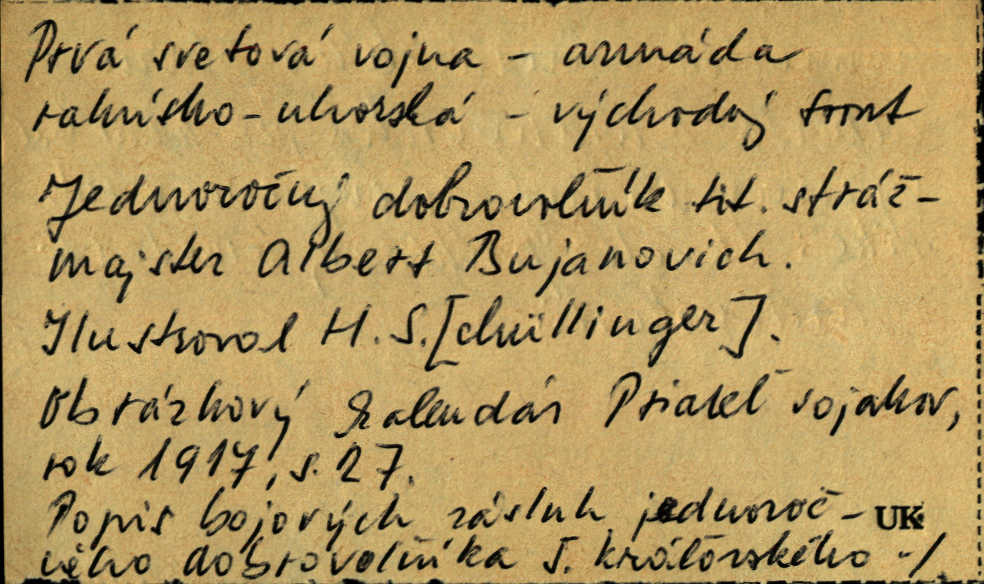 Prvá svetová vojna - armáda
rakúsko-uhorská - východný front
Jednoročný dobrovoľník tit. stráž-
majster Albert Bujanovich.
Ilustroval H. S.[chüllinger].
Obrázkový kalendár Priateľ vojakov,
rok 1917, s. 27.
Popis bojových zásluh jednoroč-
ného dobrovoľníka 5. kráľovského ./.
UK